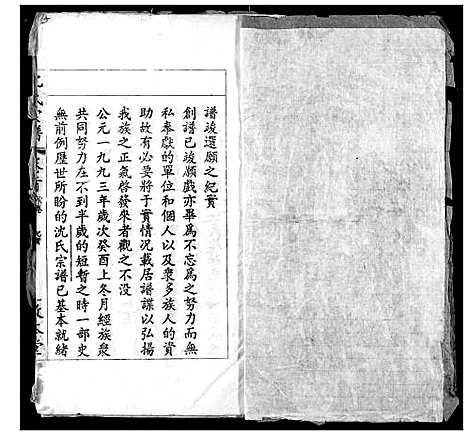 譜竣還願之紀實
創譜已竣願戲亦畢為不忘為之努力而無
私奉獻的單位和個人以及衆多族人的資
助故有必要將于實情況載居譜諜以弘揚
我族之正氣啓發來者觀之不没
公元一九九三年歲次癸酉上冬月經族衆
共同努力在不到半歲的短暫之時一部史
無前例歷世所盼的沈氏宗譜已基本就緒